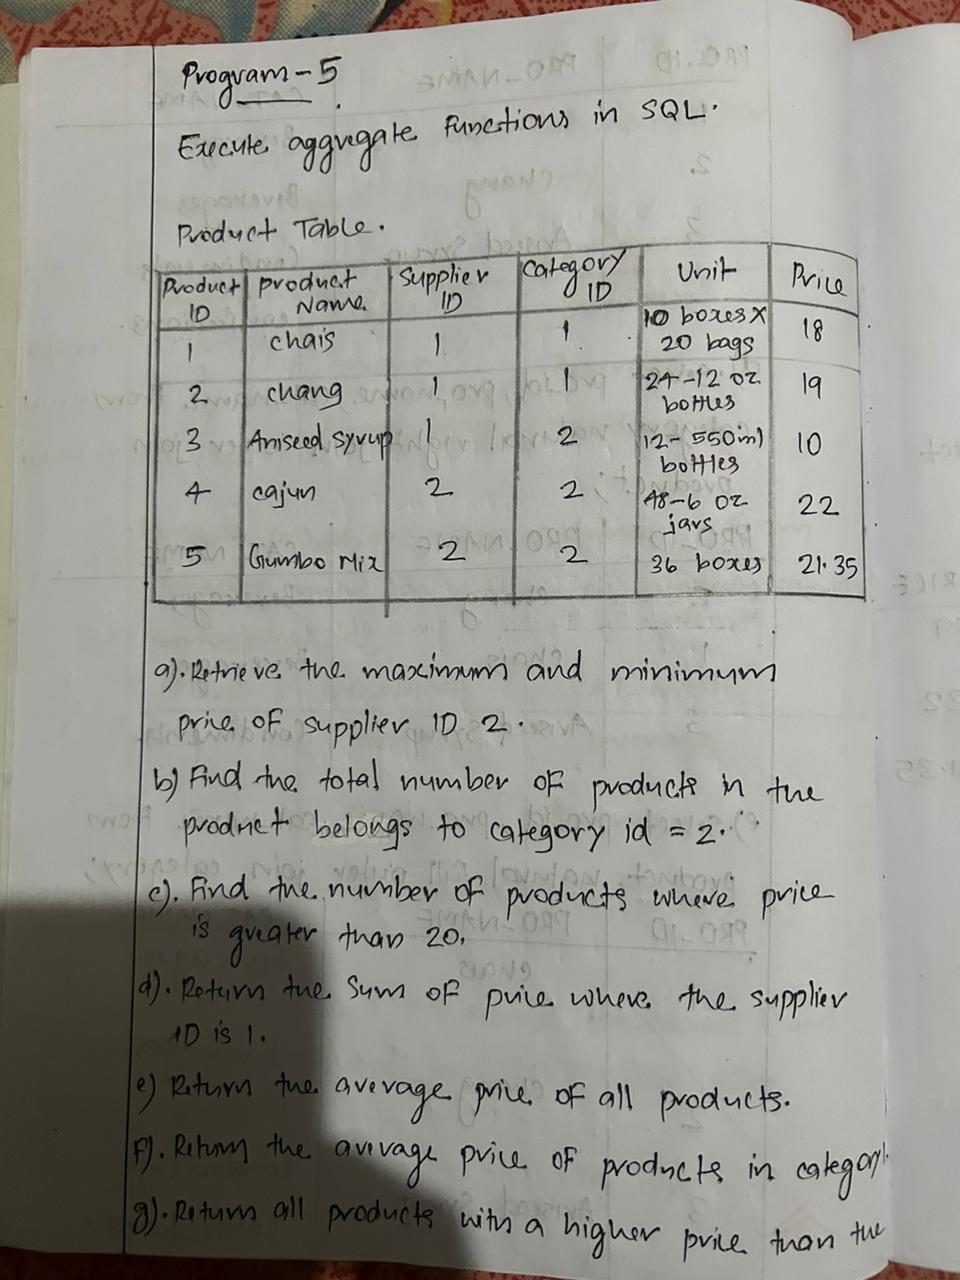 Program-5
Execute aggregate functions in SQL.
Product Table.
Product ID | product Name | Supplier ID | Category ID | Unit | Price
1 | chais | 1 | 1 | 10 boxes X 20 bags | 18
2 | chang | 1 | 1 | 24-12 oz bottles | 19
3 | Aniseed syrup | 1 | 2 | 12-550ml bottles | 10
4 | cajun | 2 | 2 | 48-6 oz jars | 22
5 | Gumbo Mix | 2 | 2 | 36 boxes | 21.35
a). Retrieve the maximum and minimum
price of supplier ID 2.
b) Find the total number of products in the
product belongs to category id = 2.
c). Find the number of products where price
is greater than 20.
d). Return the sum of price where the supplier
ID is 1.
e) Return the average price of all products.
f). Return the average price of products in category 1.
g). Return all products with a higher price than the